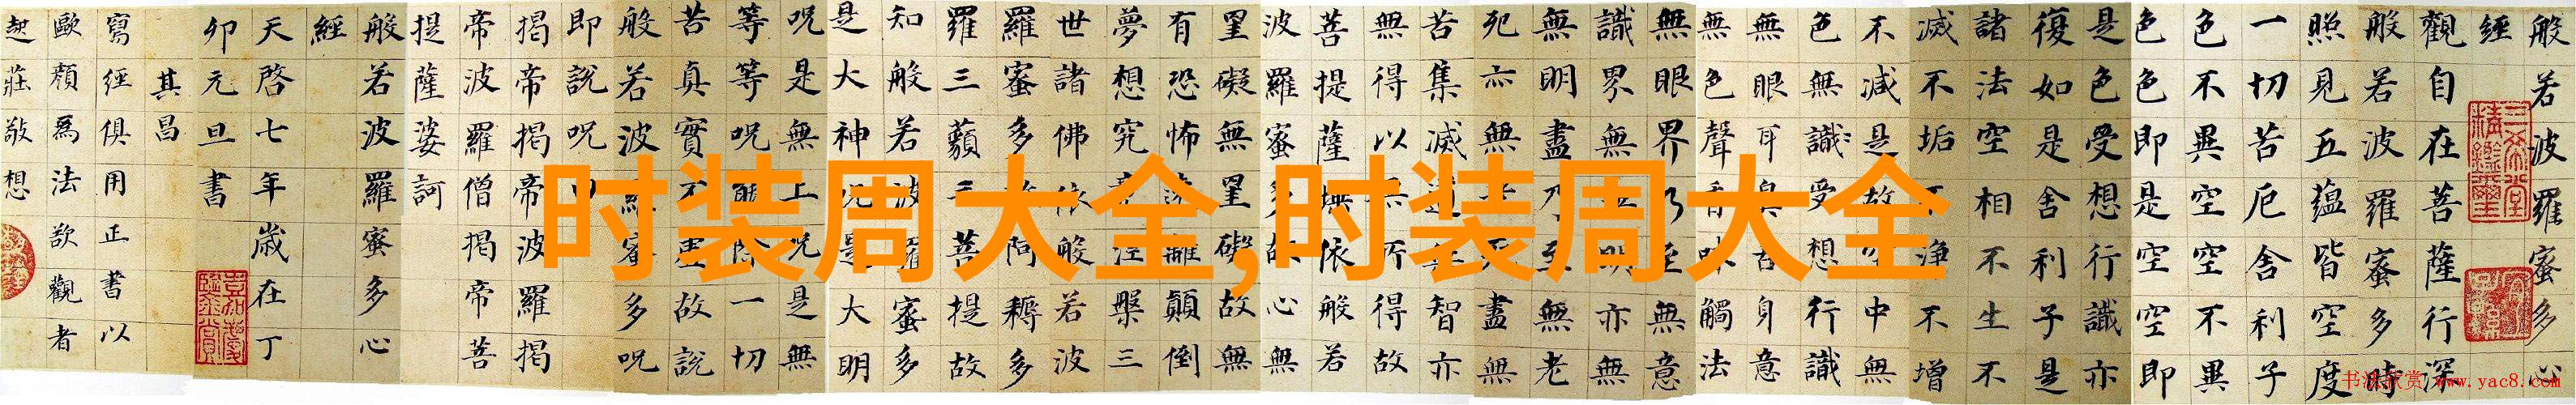 般若波羅蜜多心
經
觀自在菩薩行深
般若波羅蜜多時
照見五蘊皆空度
一切苦厄舍利子
色不異空空不異
色色即是空空即
是色受想行識亦
復如是舍利子是
諸法空相不生不
滅不垢不淨不增
不減是故空中無
色無識受想行識
無眼耳鼻舌身意
無色聲香味觸法
無眼界乃至無意
識界無無明亦無
無明盡乃至無老
死亦無老死盡無
苦集滅道無智亦
無得以無所得故
菩提薩埵依般若
波羅蜜多故心無
罣礙無罣礙故無
有恐怖遠離顛倒
夢想究竟涅槃三
世諸佛依般若波
羅蜜多故阿耨多
羅三藐三菩提故
知般若波羅蜜多
是大神呪是大明
呪是無上呪是無
等等呪能除一切
苦真實不虛故說
般若波羅蜜多呪
即說呪曰
揭帝揭帝波羅揭
帝波羅僧揭帝菩
提薩婆訶
般若波羅蜜多心
經
天啓七年歲在丁
卯元旦書
其昌
寫經俱用正書以
歐顏爲法欲觀者
起莊敬想
时装周大全,时装周大全
书法欣赏 www.yac8.com